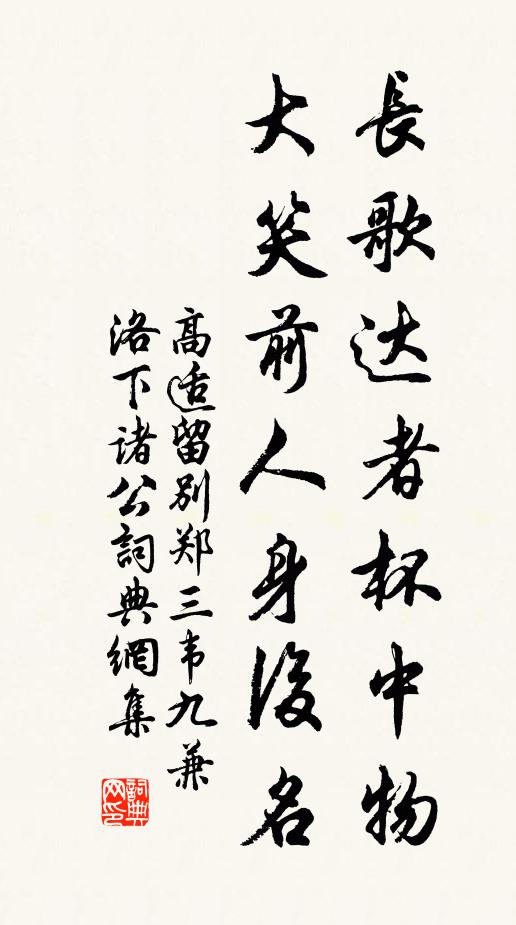 長歌达者杯中物
大笑前人身後名
高适留别郑三韦九兼
洛下诸公詞典網集
詞典
网印